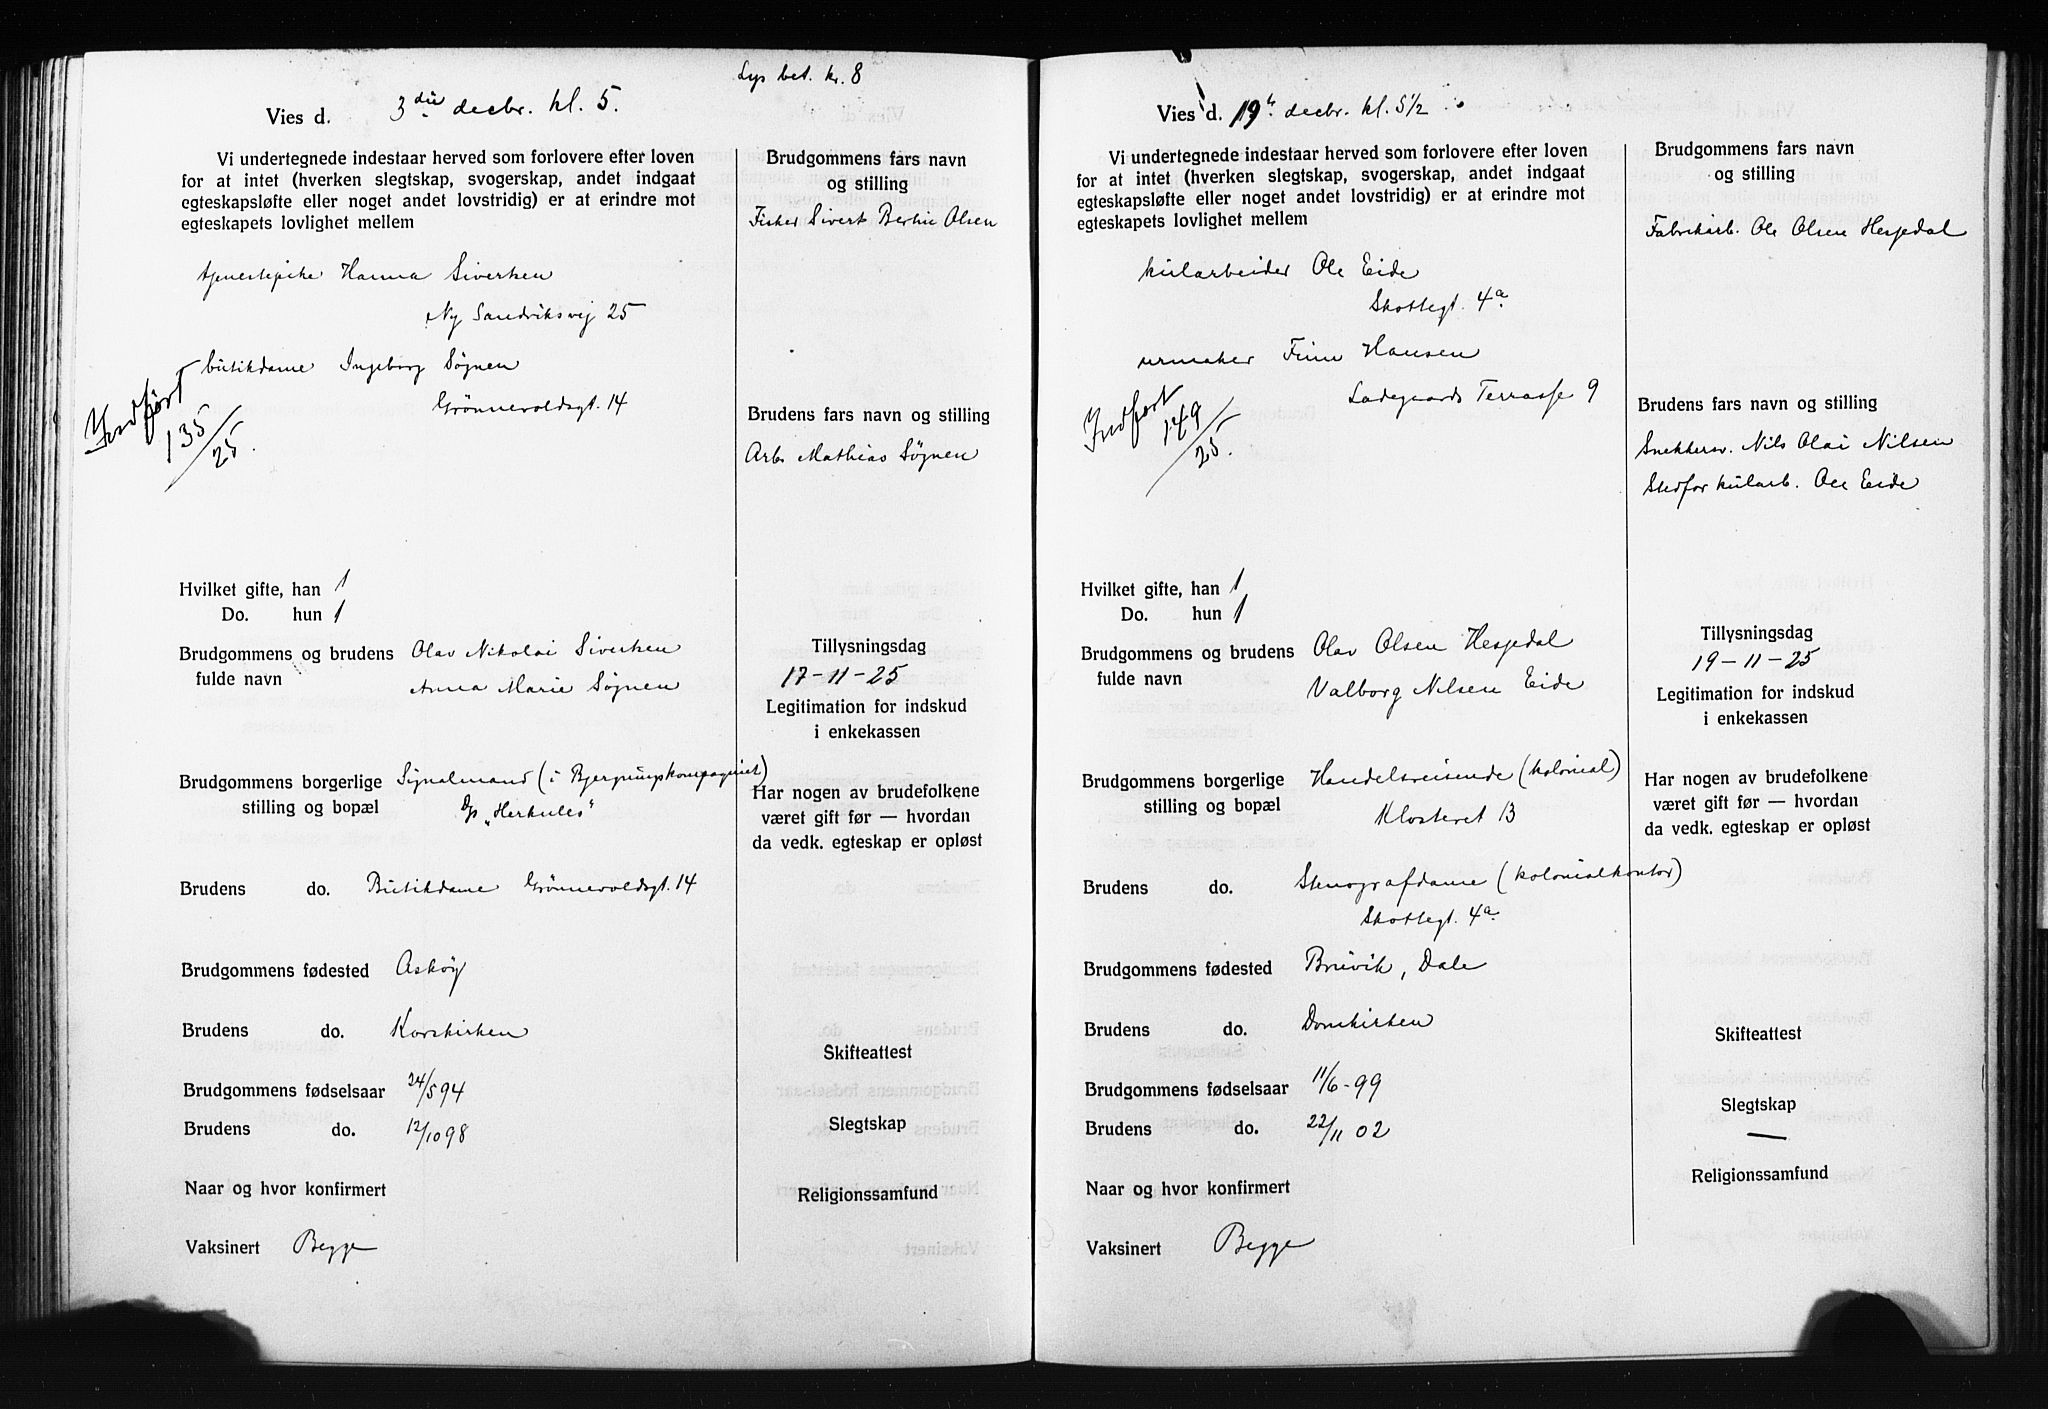 Lys bet. kr. 8
Vies d. 3die decbr. kl. 5.
Vi undertegnede indestaar herved som forlovere efter loven
for at intet (hverken slegtskap, svogerskap, andet indgaat
egteskapsløfte eller noget andet lovstridig) er at erindre mot
egteskapets lovlighet mellem
tjenestepike Hanna Sivertsen
Ny Sandviksvej 25
butikdame Ingeborg Søgnen
Grønnevoldsgt. 14
Indført
135/25.
Hvilket gifte, han 1
Do. hun 1
Brudgommens og brudens Olav Nikolai Sivertsen
fulde navn Anna Marie Søgnen
Brudgommens borgerlige Signalmand (i Bjergningskompagniet)
stilling og bopæl D/s "Herkules"
Brudens do. Butikdame Grønnevoldsgt. 14
Brudgommens fødested Askøy
Brudens do. Korskirken
Brudgommens fødselsaar 24/5 94
Brudens do. 12/10 98
Naar og hvor konfirmert
Vaksinert Begge
Brudgommens fars navn
og stilling
Fisker Sivert Bertin Olsen
Brudens fars navn og stilling
Arb. Mathias Søgnen
Tillysningsdag
17-11-25
Legitimation for indskud
i enkekassen
Har nogen av brudefolkene
været gift før — hvordan
da vedk. egteskap er opløst
Skifteattest
Slegtskap
Religionssamfund
Vies d. 19de decbr. kl. 5 1/2
Vi undertegnede indestaar herved som forlovere efter loven
for at intet (hverken slegtskap, svogerskap, andet indgaat
egteskapsløfte eller noget andet lovstridig) er at erindre mot
egteskapets lovlighet mellem
kularbeider Ole Eide
Skottegt. 4a
urmaker Finn Hansen
Ladegaards Terrasse 9
Indført
149/25.
Hvilket gifte, han 1
Do. hun 1
Brudgommens og brudens Olav Olsen Hesjedal
fulde navn Valborg Nilsen Eide
Brudgommens borgerlige Handelsreisende (kolonial)
stilling og bopæl Klosteret 13
Brudens do. Stenografdame (kolonialkontor)
Skottegt. 4a
Brudgommens fødested Bruvik, Dale
Brudens do. Domkirken
Brudgommens fødselsaar 11/6-99
Brudens do. 22/11 02
Naar og hvor konfirmert
Vaksinert Begge
Brudgommens fars navn
og stilling
Fabrikarb. Ole Olsen Hesjedal
Brudens fars navn og stilling
Snekkersv. Nils Olai Nilsen
Stedfar kularb. Ole Eide
Tillysningsdag
19-11-25
Legitimation for indskud
i enkekassen
Har nogen av brudefolkene
været gift før — hvordan
da vedk. egteskap er opløst
Skifteattest
Slegtskap
—
Religionssamfund